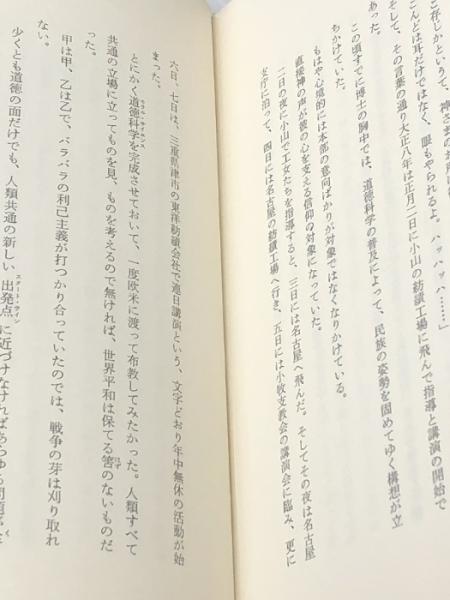 ご存じかというて、神さまのお声は
こんどは耳だけではなく、眼もやられるよ。ハッハッハ……」
そして、その言葉の通り大正八年は正月二日に小山の紡績工場に飛んで指導と講演の開始で
あった。
この頃すでに博士の胸中では、道徳科学の普及によって、民族の姿勢を固めてゆく構想が立
ちかけていた。
もはや心境的には本部の意向ばかりが対象ではなくなりかけている。
直接神の声が彼の心を支える信仰の対象になっていた。
二日の夜に小山で工女たちを指導すると、三日には名古屋へ飛んだ。そしてその夜は名古屋
支庁に泊って、四日には名古屋の紡績工場へ行き、五日には小牧支教会の講演会に臨み、更に
六日、七日は、三重県津市の東洋紡績会社で連日講演という、文字どおり年中無休の活動が始
まった。
とにかく道徳科学モラル・サイエンスを完成させておいて、一度欧米に渡って布教してみたかった。人類すべて
共通の立場に立ってものを見、ものを考えるので無ければ、世界平和は保てる筈はずのないものだ
った。
甲は甲、乙は乙で、バラバラの利己主義が打つかり合っていたのでは、戦争の芽は刈り取れ
ない。
少くとも道徳の面だけでも、人類共通の新しい出発点スタート・ラインに近づけなければあらゆる問題